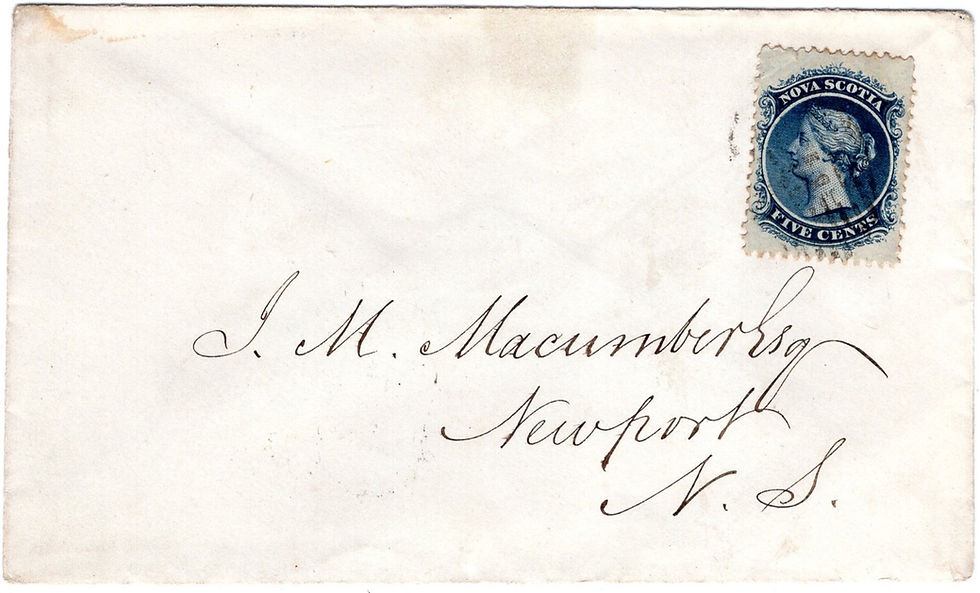 NOVA SCOTIA
FIVE CENTS
J. M. Macumber Esq
Newport
N. S.